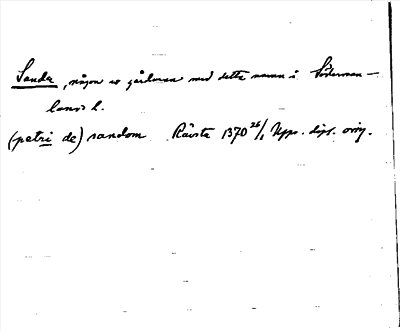 Sanda, någon av gårdarna med detta namn i Söderman-
lands l.
(petri de) sandom Rävsta 1370 26/1 Upps. dipl. orig.